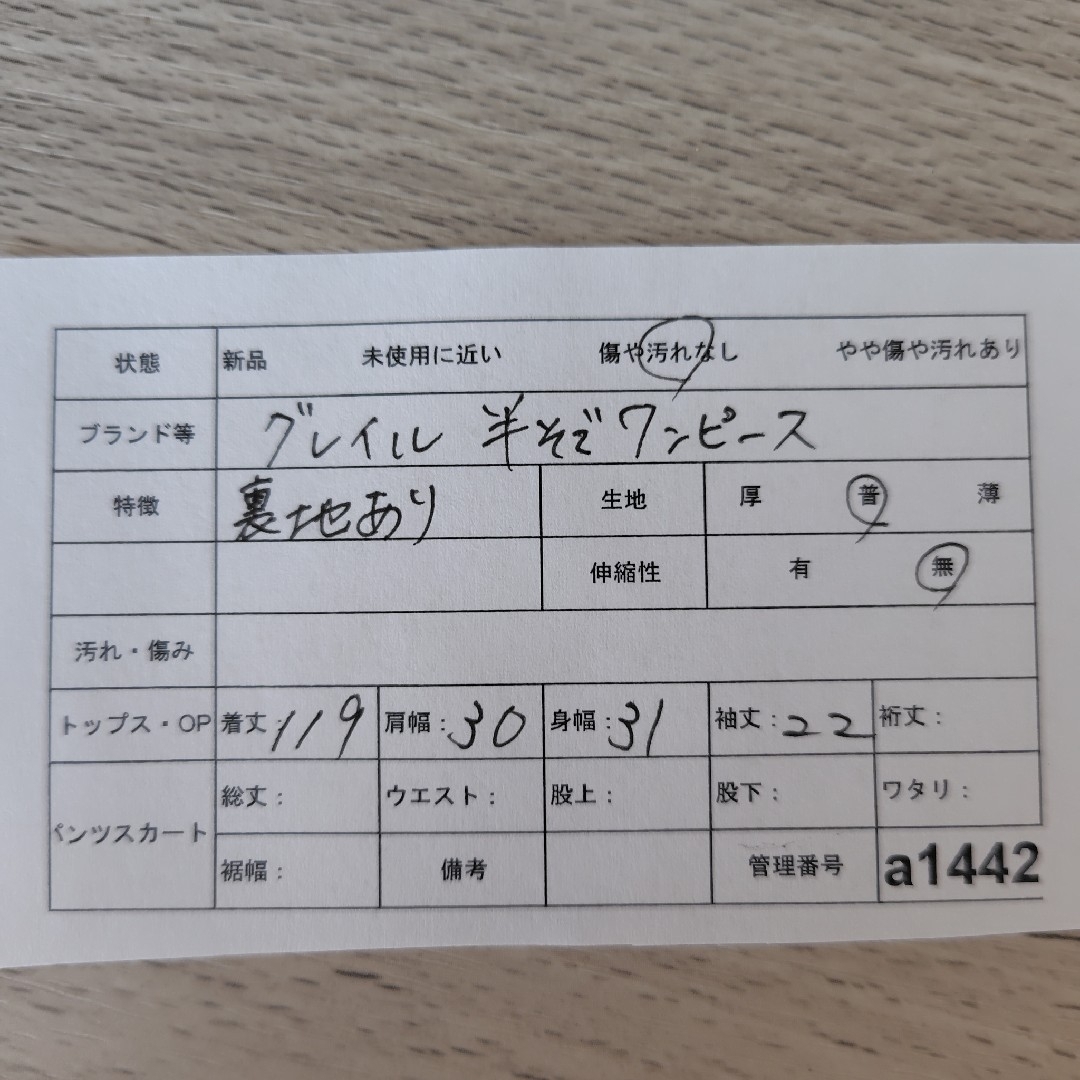 状態 新品 未使用に近い 傷や汚れなし やや傷や汚れあり
ブランド等 グレイル 半そでワンピース
特徴 裏地あり 生地 厚 普 薄
伸縮性 有 無
汚れ・傷み
トップス・OP 着丈:119 肩幅:30 身幅:31 袖丈:22 裄丈:
パンツスカート 総丈: ウエスト: 股上: 股下: ワタリ:
裾幅: 備考 管理番号 a1442